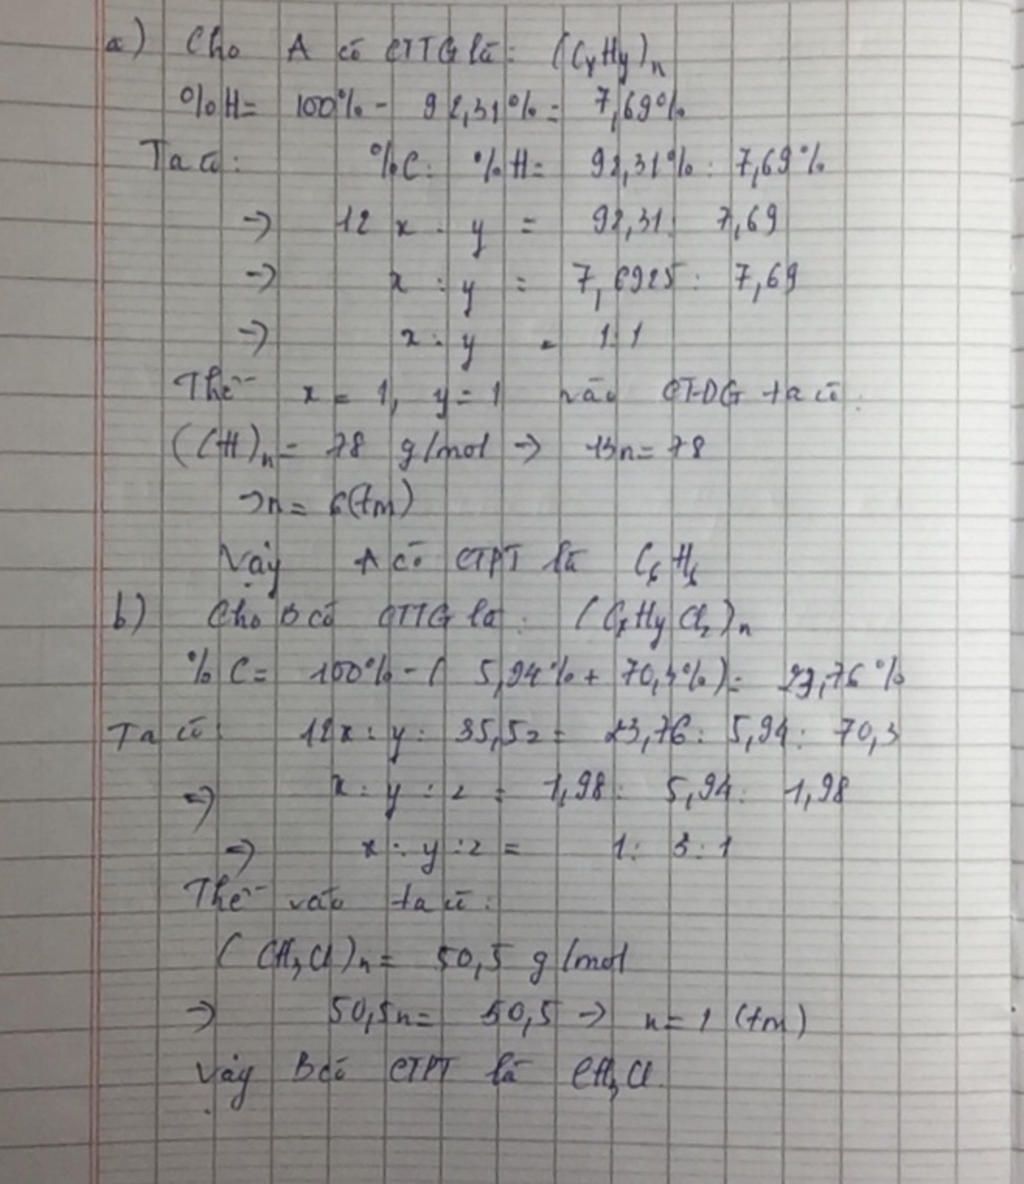 a) Cho A có CTTG là: (CxHy)n
%H = 100% - 92,31% = 7,69%
Ta có: %C : %H = 92,31% : 7,69%
=> 12x : y = 92,31 : 7,69
=> x : y = 7,6925 : 7,69
=> x : y = 1:1
Thế x = 1, y = 1 vào CTDG ta có:
(CH)n = 78 g/mol -> 13n = 78
->n = 6(tm)
Vậy A có CTPT là C6H6
b) Cho B có CTTG là: (CxHyClz)n
% C = 100% - ( 5,94% + 70,3%) = 23,76%
Ta có: 12x : y : 35,5z = 23,76 : 5,94 : 70,3
=> x : y : z = 1,98 : 5,94 : 1,98
=> x : y : z = 1 : 3 : 1
Thế vào ta có:
(CH3Cl)n = 50,5 g/mol
=> 50,5n = 50,5 -> n = 1 (tm)
Vậy B có CTPT là CH3Cl